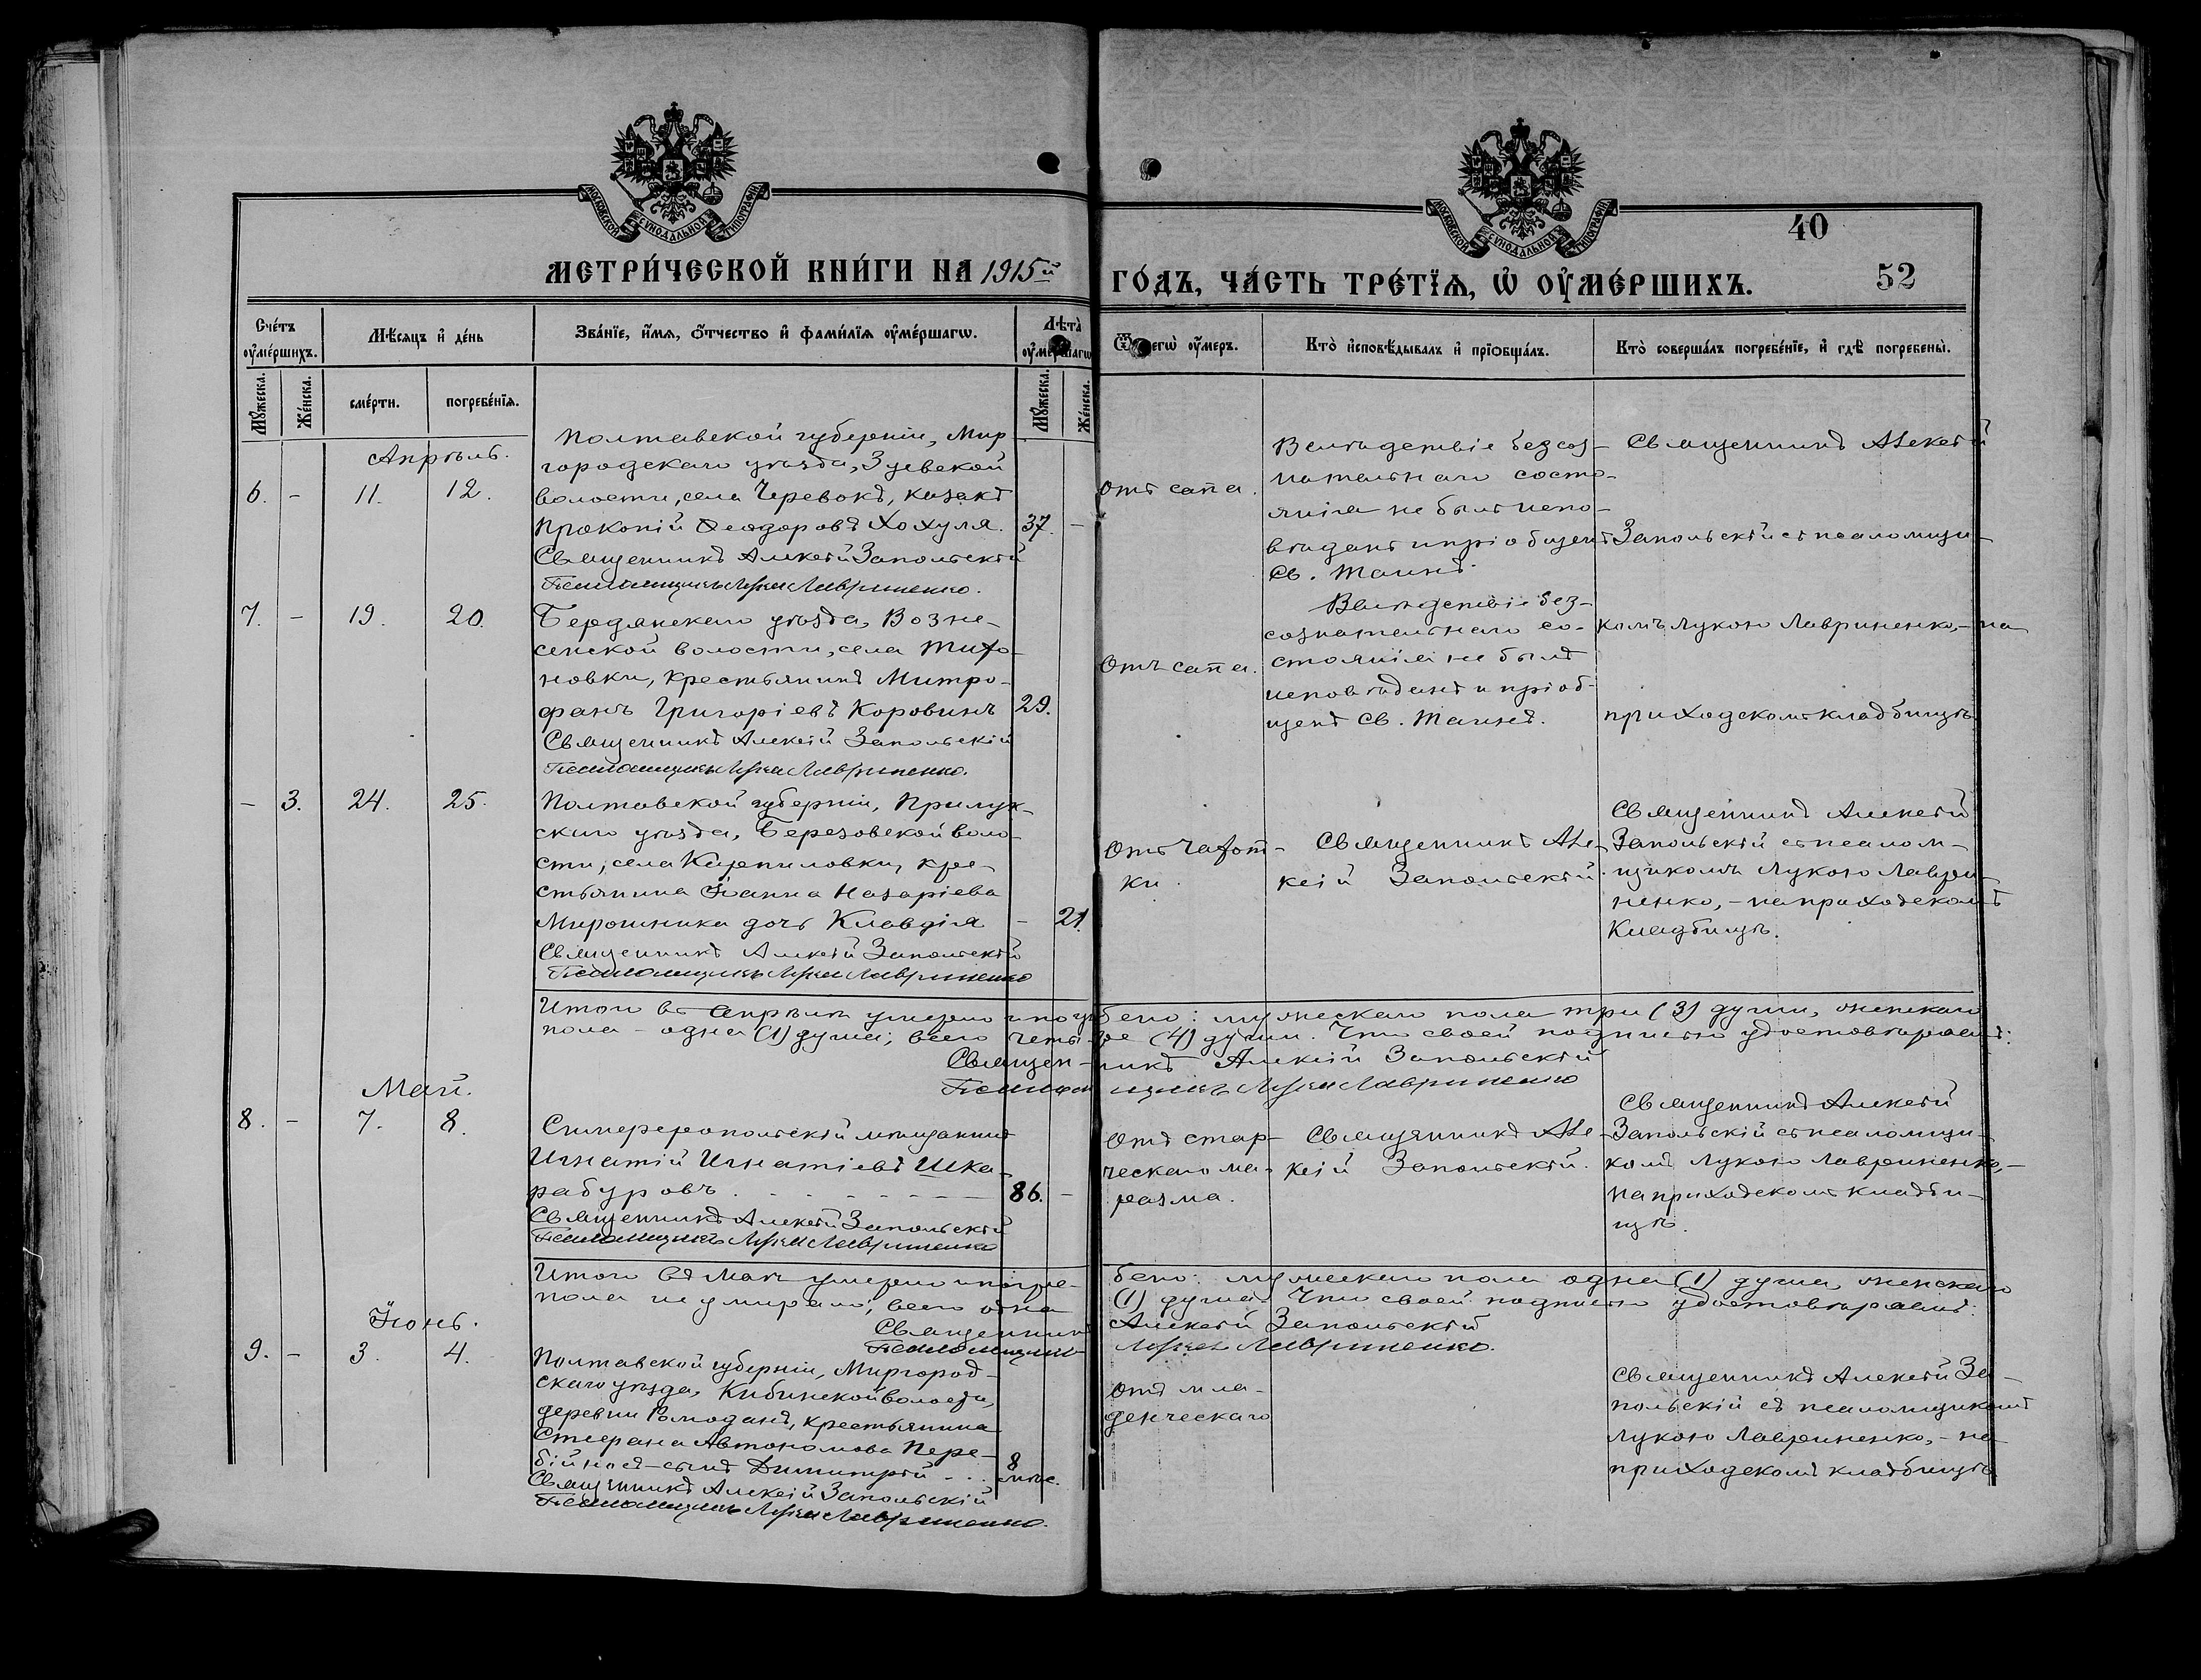 МОСКОВСКОЙ СѴНОДАЛЬНОЙ ТИПОГРАФІИ
МОСКОВСКОЙ СѴНОДАЛЬНОЙ ТИПОГРАФІИ
40
МЕТРИ́ЧЕСКОЙ КНИ́ГИ НА 1915й ГО́ДЪ, ЧА́СТЬ ТРЕ́ТЇѦ, Ѡ҆ ОУ҆МЕ́РШИХЪ.
52
Сче́тъ оу҆ме́ршихъ.
Мѣ́сяцъ и҆ де́нь
Зва́нїе, и҆́мѧ, ѻ҆́тчество и҆ фами́лїѧ оу҆ме́ршагѡ.
Лѣта̀ оу҆ме́ршагѡ
Ѿ чегѡ̀ оу҆́меръ.
Кто̀ и҆сповѣ́дывалъ и҆ прїѡбща́лъ.
Кто̀ соверша́лъ погребе́нїе, и҆ гдѣ̀ погребены̀.
Мꙋ́жеска.
Же́нска.
сме́рти.
погребе́нїя.
Мꙋ́жеска.
Же́нска.
Апрѣль.
6. - 11. 12.
Полтавской губерніи, Мир-
городскаго уѣзда, Зуевской
волости, села Черевокъ, казакъ
Прокопій Ѳеодоровъ Хохуля. 37. -
Священникъ Алексѣй Запольскій
Псаломщикъ Лука Лавриненко.
Отъ сапа.
Вслѣдствіе безсоз-
нательнаго состо-
янія не былъ испо-
вѣданъ и пріобщенъ
Св. Таинъ.
Священникъ Алексѣй
Запольскій съ псаломщи-
7. - 19. 20.
Бердянскаго уѣзда, Возне-
сенской волости, села Тихо-
новки, крестьянинъ Митро-
фанъ Григоріевъ Коровинъ 29.
Священникъ Алексій Запольскій
Псаломщикъ Лука Лавриненко.
Отъ сапа.
Вслѣдствіе без-
сознательнаго со-
стоянія не былъ
исповѣданъ и пріоб-
щенъ Св. Таинъ.
комъ Лукою Лавриненко, - на
приходскомъ кладбищѣ
- 3. 24. 25.
Полтавской губерніи, Прилук-
скаго уѣзда, Березовской воло-
сти, села Карпиловки, кре-
стьянина Іоанна Назаріева
Мирошника дочь Клавдія - 21.
Священникъ Алексій Запольскій
Псаломщикъ Лука Лавриненко
Отъ чахот-
ки.
Священникъ Але-
ксій Запольскій.
Священникъ Алексѣй
Запольскій съ псалом-
щикомъ Лукою Лаври-
ненко, - на приходскомъ
кладбищѣ.
Итого въ Апрѣлѣ умерло и погребено: мужескаго пола три (3) души, женскаго
пола - одна (1) душа; всего четыре (4) души. Что своей подписью удостовѣряемъ:
Священникъ Алексій Запольскій
Псаломщикъ Лука Лавриненко
Май.
8. - 7. 8.
Симферопольскій мѣщанинъ
Игнатій Игнатіевъ Шка-
рабуровъ . - - - - - 86. -
Священникъ Алексѣй Запольскій
Псаломщикъ Лука Лавриненко
Отъ стар-
ческаго ма-
разма.
Священникъ Але-
ксій Запольскій.
Священникъ Алексѣй
Запольскій съ псаломщи-
комъ Лукою Лавриненко, -
на приходскомъ кладби-
щѣ.
Итого въ Маѣ умерло и погре-бено: мужескаго пола одна (1) душа, женскаго
пола не умирало; всего одна (1) душа. Что своей подписью удостовѣряемъ:
Священникъ Алексѣй Запольскій
Псаломщикъ Лука Лавриненко.
Іюнь.
9. - 3. 4.
Полтавской губерніи, Миргород-
скаго уѣзда, Кибинской волости,
деревни Ромоданъ, крестьянина
Стефана Автономова Пере-
бійноса - сынъ Димитрій - . . 8 мѣс.
Священникъ Алексій Запольскій
Псаломщикъ Лука Лавриненко.
Отъ мла-
денческаго
Священникъ Алексѣй За-
польскій съ псаломщикомъ
Лукою Лавриненко, - на
приходскомъ кладбищѣ